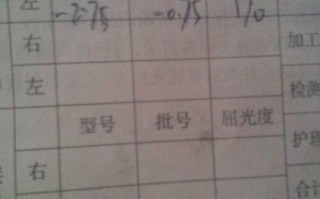 左 -2.75 -0.75 170
右 加工
左 检测
型号 批号 屈光度
护理
右
合计